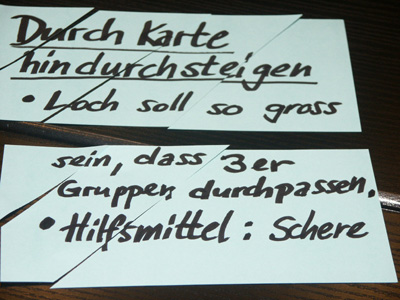 Durch Karte
hindurchsteigen
• Loch soll so gross
sein, dass 3er
Gruppen durchpassen.
• Hilfsmittel : Schere